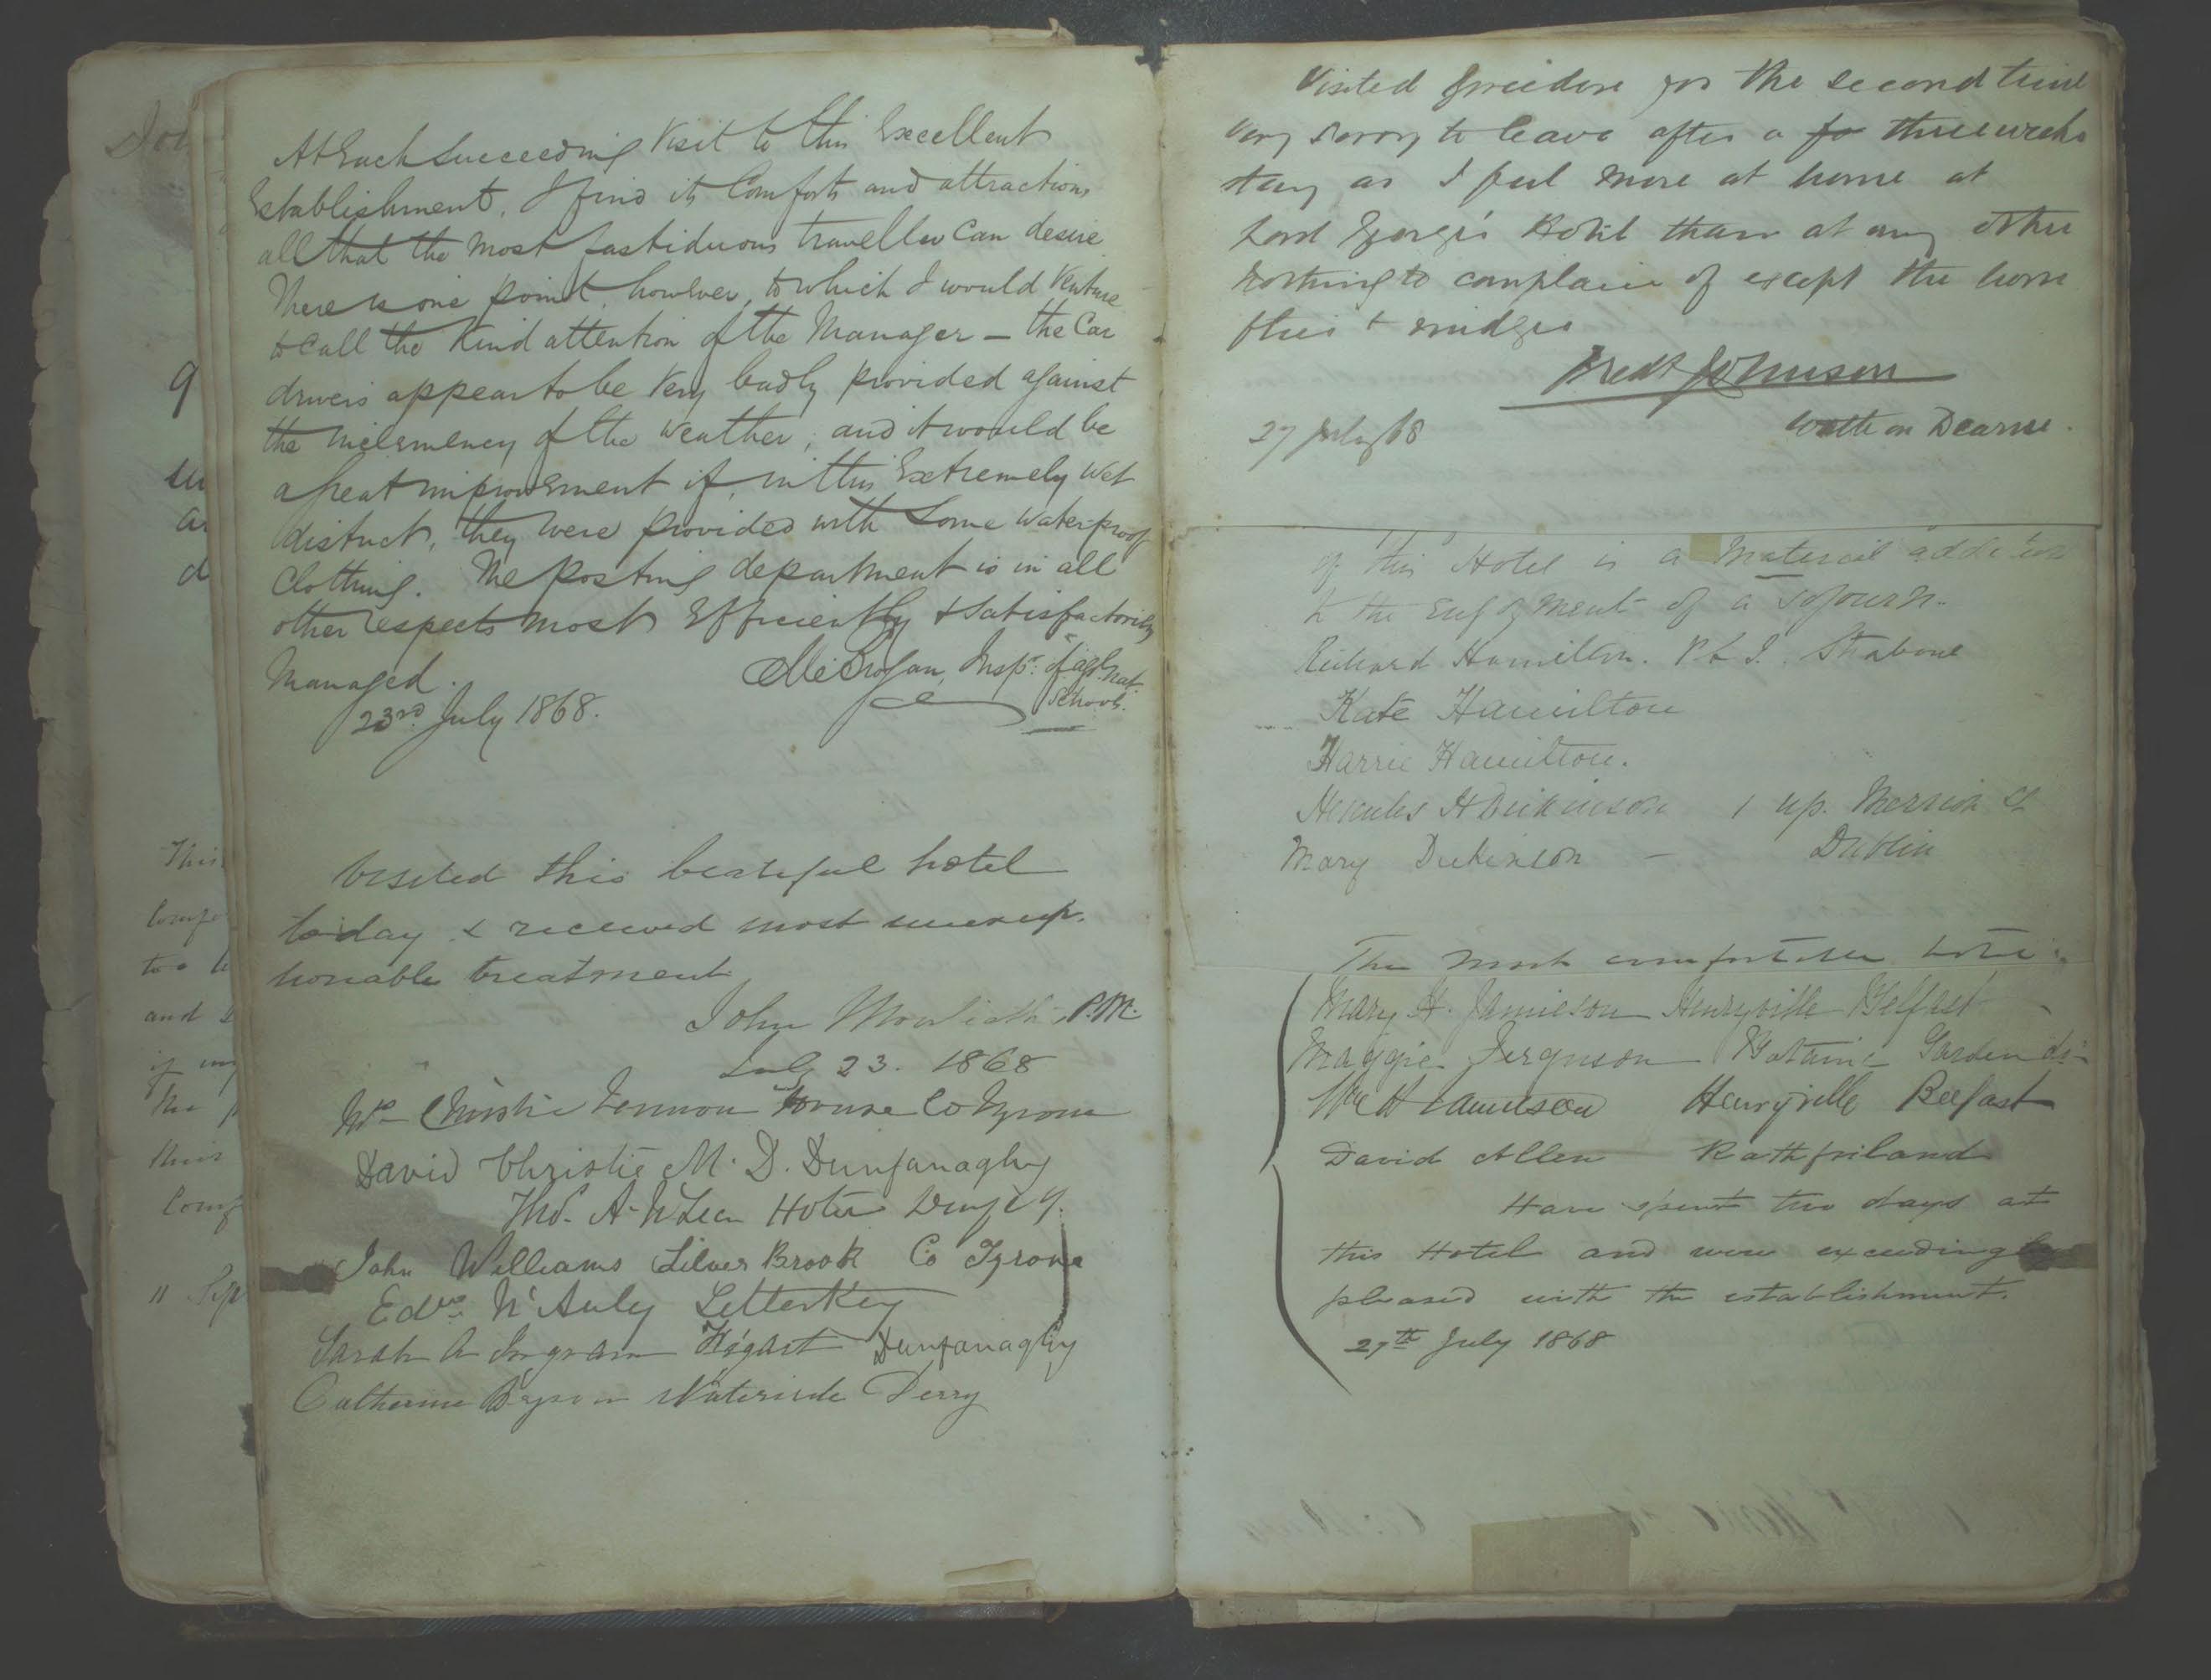 At Each Succeeding Visit to this Excellent
Establishment, I find its Comforts and attractions
all that the most fastiduous traveller Can desire
There is one point, however, to which I would Venture
to Call the Kind attention of the Manager — the Car
drivers appear to be Very badly provided against
the inclemency of the Weather; and it would be
a great improvement if, in this Extremely Wet
district, they were provided with Some Waterproof
Clothing. The posting department is in all
other respects most Efficiently & Satisfactorily
Managed.
Inspr. of agl. Nat. Schools.
23rd. July 1868.
Visited this beautiful hotel
today & received most unexcep-
tionable treatment
John R.M.
July 23. 1868
Christie House Co Tyrone
David Christie M. D. Dunfanaghy
Thos. A. Hotel
John Williams Silver Brook Co Tyrone
Edwd. McAuly Letterkey
Sarah A Ingram Dunfanaghy
Catherine Waterside Derry
Visited Gweedore for the second time
Very sorry to leave after a fo three weeks
stay as I feel more at home at
Lord George's Hotel than at any other
Nothing to complain of except the horse
flies & midges
Fredk Johnson
27 July/68 Wath on Dearne.
of this Hotel is a Material addition
to the enjoyment of a sojourn.
Richard Hamilton. Strabane
Kate Hamilton
Harrie Hamilton.
Hercules H Dickinson 1 up. Merrion St
Mary Dickinson — Dublin
The most comfortable hotel
Mary H. Jamieson Henryville Belfast
Maggie Ferguson Botanic Garden do
Wm H Jamieson Henryville Belfast
David Allen Rathfriland
Have spent two days at
this Hotel and were exceedingly
pleased with the establishment.
27th July 1868